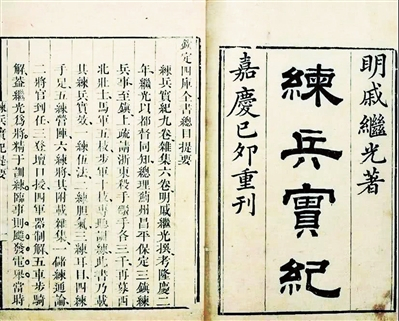 明戚繼光著
練兵實紀
嘉慶己卯重刊
欽定四庫全書總目提要
練兵實紀九卷雜集六卷明戚繼光撰考隆慶二
年繼光以都督同知總理薊州昌平保定三鎮練
兵事至鎮上疏請浙東殺手礮手各三千再募西
北壯士馬軍五枝步軍十枝專聽訓練此書乃載
其練兵實效一練伍法二練膽氣三練耳目四練
手足五練營陣六練將其附載雜集一儲練通論
二將官到任三登壇口授四軍器制解五車步騎
解蓋繼光為將精于訓練臨事則飇發電舉當時
練兵實紀提要